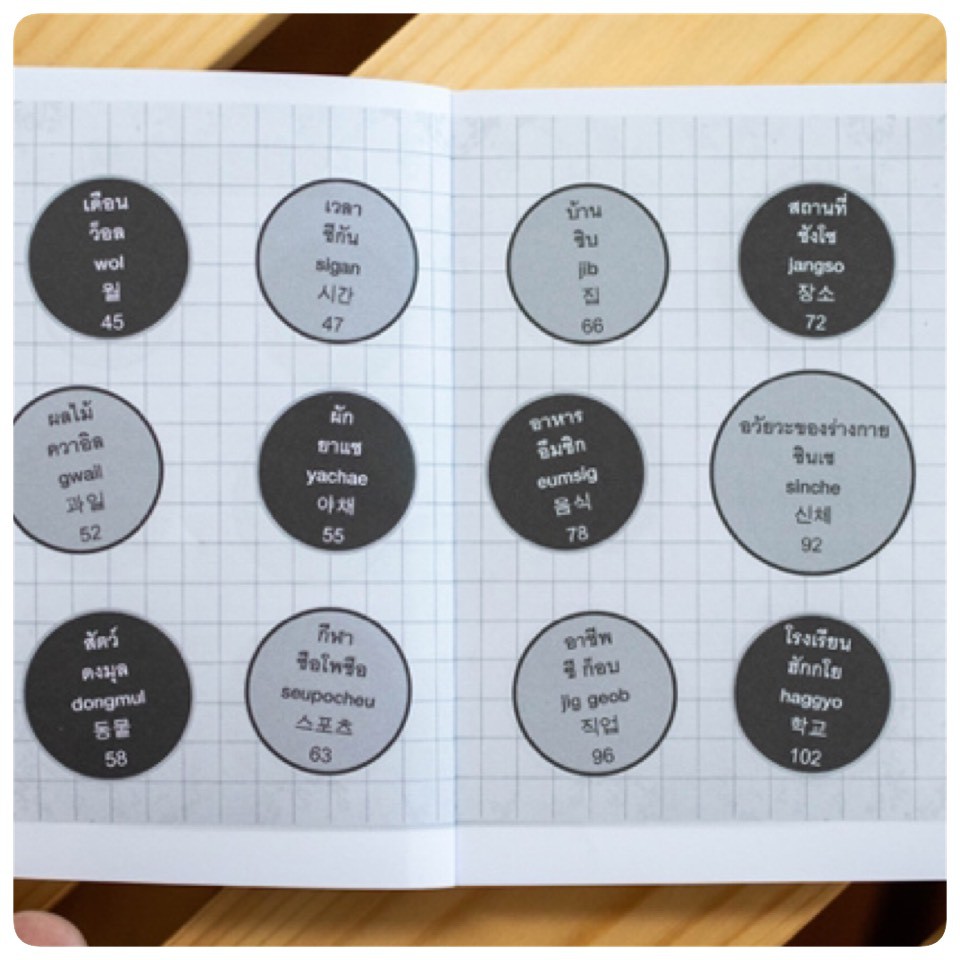 เดือน
ว็อล
wol
월
45
เวลา
ชีกัน
sigan
시간
47
บ้าน
ชิบ
jib
집
66
สถานที่
ชังโซ
jangso
장소
72
ผลไม้
ควาอิล
gwail
과일
52
ผัก
ยาแช
yachae
야채
55
อาหาร
อึมชิก
eumsig
음식
78
อวัยวะของร่างกาย
ชินเช
sinche
신체
92
สัตว์
ดงมุล
dongmul
동물
58
กีฬา
ซือโพชือ
seupocheu
스포츠
63
อาชีพ
ชี ก็อบ
jig geob
직업
96
โรงเรียน
ฮักกโย
haggyo
학교
102